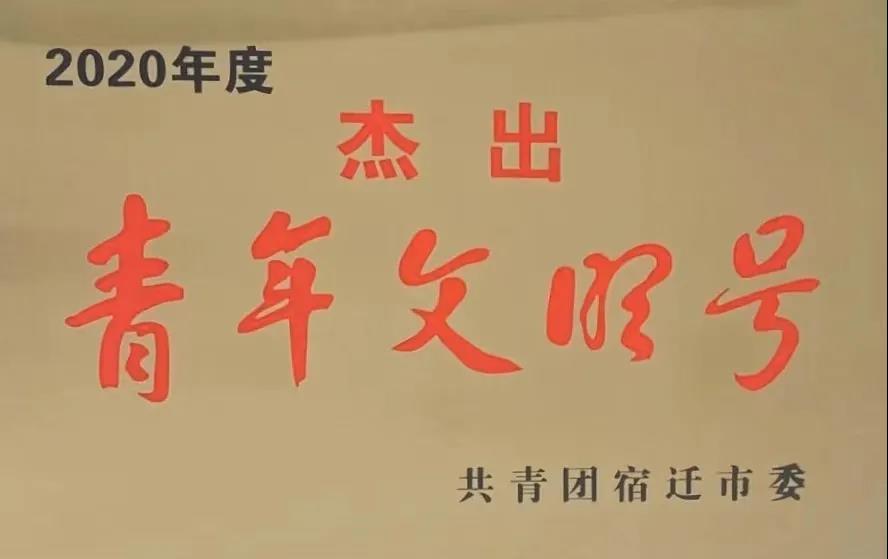 2020年度
杰出
青年文明号
共青团宿迁市委